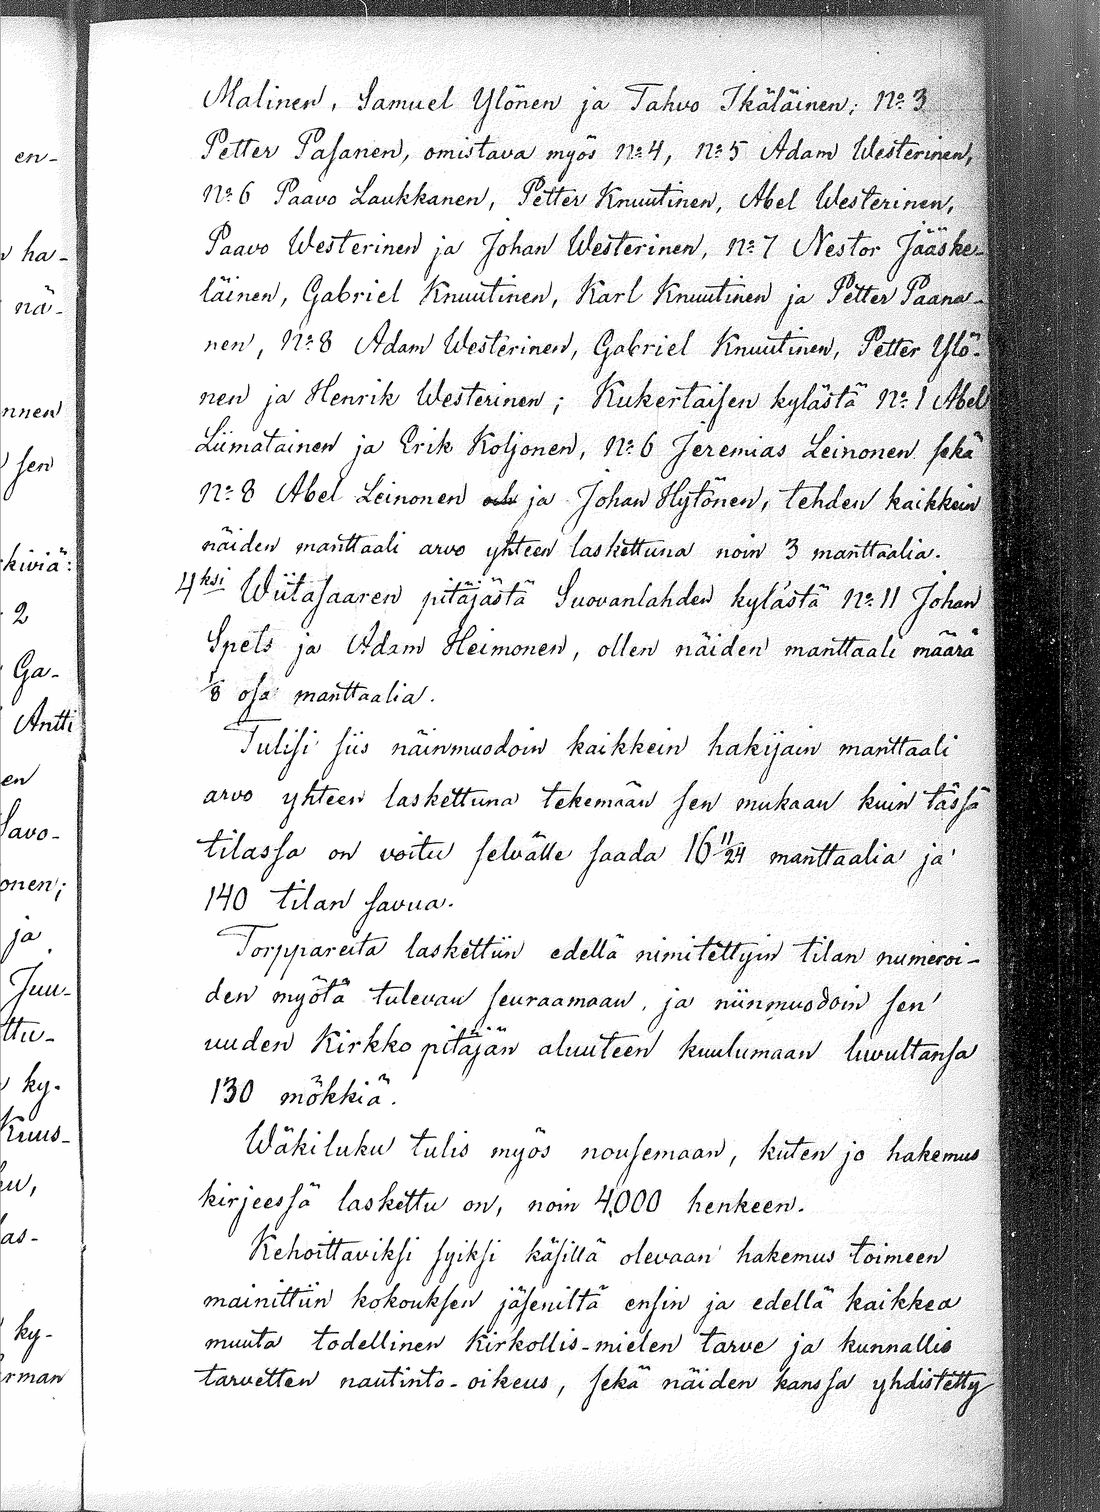 en-
ha-
nä-
nnen
sen
kiviä:
2
Ga-
Antti
en
Savo-
onen;
ja
Juu-
ttu-
ky-
Kuus-
as-
ky-
rman
Malinen, Samuel Ylönen ja Tahvo Ikäläinen; No 3
Petter Pasanen, omistava myös No 4, No 5 Adam Westerinen,
No 6 Paavo Laukkanen, Petter Knuutinen, Abel Westerinen,
Paavo Westerinen ja Johan Westerinen, No 7 Nestor Jääske-
läinen, Gabriel Knuutinen, Karl Knuutinen ja Petter Paana-
nen, No 8 Adam Westerinen, Gabriel Knuutinen, Petter Ylö-
nen ja Henrik Westerinen; Kukertaisen kylästä No 1 Abel
Liimatainen ja Erik Koljonen, No 6 Jeremias Leinonen sekä
No 8 Abel Leinonen och ja Johan Hytönen, tehden kaikkein
näiden manttaali arvo yhteen laskettuna noin 3 manttaalia.
4ksi Wiitasaaren pitäjästä Suovanlahden kylästä No 11 Johan
Spets ja Adam Heimonen, ollen näiden manttaali määrä
1/8 osa manttaalia.
Tulisi siis näinmuodoin kaikkein hakijain manttaali
arvo yhteen laskettuna tekemään sen mukaan kuin tässä
tilassa on voitu selvälle saada 16 11/24 manttaalia ja
140 tilan savua.
Torppareita laskettiin edellä nimitettyin tilan numeroi-
den myötä tulevan seuraamaan, ja niinmuodoin sen
uuden Kirkko pitäjän aluuteen kuulumaan luvultansa
130 mökkiä.
Wäkiluku tulis myös nousemaan, kuten jo hakemus
kirjeessä laskettu on, noin 4,000 henkeen.
Kehoittaviksi syiksi käsillä olevaan hakemus toimeen
mainittiin kokouksen jäseniltä ensin ja edellä kaikkea
muuta todellinen Kirkollis-mielen tarve ja kunnallis
tarvetten nautinto-oikeus, sekä näiden kanssa yhdistetty